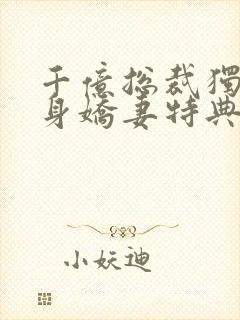 千億總裁獨
身嬌妻特典
小妖迪